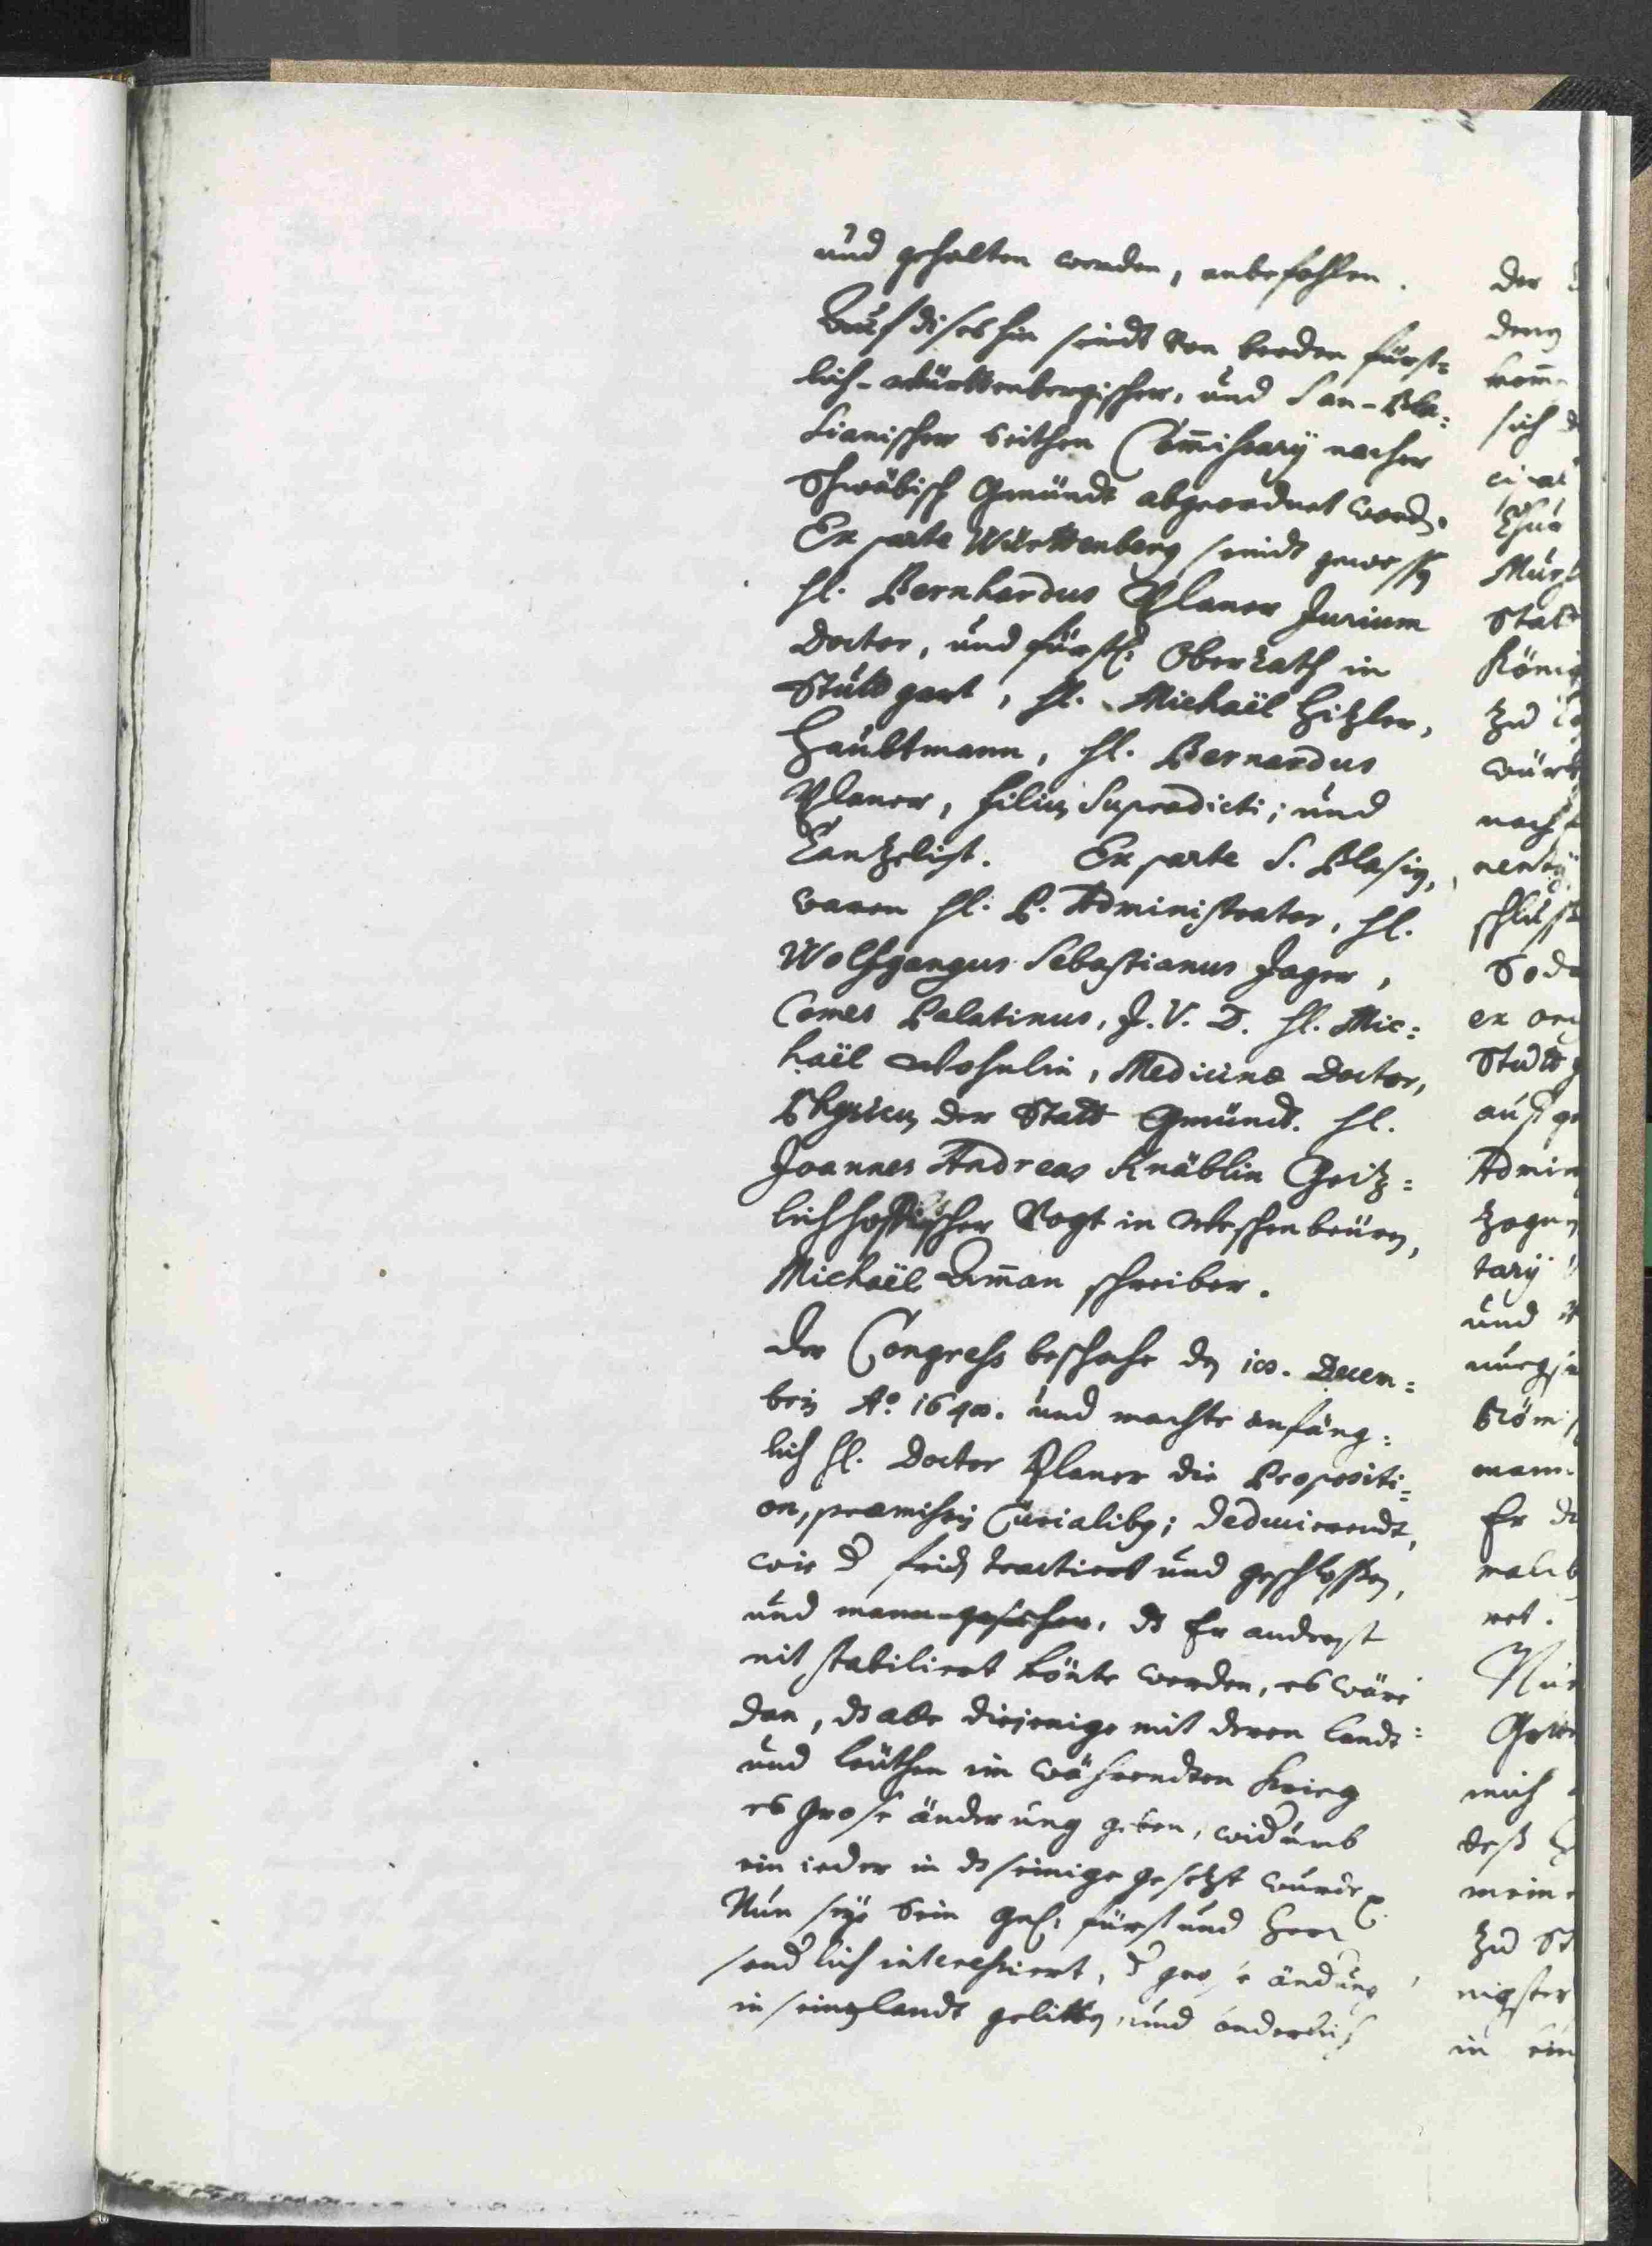 und gehalten werden, anbefohlen.
Auf dises hin seindt von beeden fürst=
lich-Württenbergischer, und San-Bla=
sianischer seithen Com̄issarÿ nacher
Schwäbisch Gmündt abgeordnet word.
Ex parte Württenberg seindt gewessen
H. Bernhardus Planer Jurium
Doctor, und fürstl. Oberrath in
Stuttgart, H. Michaël Hitzler,
Haubtmann, H. Bernardus
Planer, filius Supradicti; und
Cantzelist. Ex parte S. Blasii,
waren H. P. Administrator, H.
Wolfgangus Sebastianus Jager,
Comes Palatinus, J. V. D. H. Mic=
haël Wohnlin, Medicinæ Doctor,
Physicus der Statt Gmündt. H.
Joannes Andreas Knäblin
Vogt in Weschenbeüren,
Michaël Am̄an schreiber.
Der Congress beschahe den 10. Decem=
bris Aº. 1648. und machte anfäng=
lich H. Doctor Planer die Propositi=
on, præmissis Curialibus; deducierendt,
wie der frid tractiert und geschlossen,
und mann gesehen, ds Er anderst
nit stabiliert könte werden, es wäre
dan, ds alle diejenige mit deren landt=
und leüthen im währendten krieg
es grose änderung geben, widerumb
ein ieder in ds seinige gesetzt wurde
Nun seÿe Sein gn. fürst und Herr
sonderlich interessiert, der grose änderung
in seinem landt gelitten, und
der
sich
Statt
König
zu
würt
nach
schluss
ex
Stutt
auß
Admin
tarÿ
und
Er
Nun
mich
deß
mein
zu St
nigster
in ein